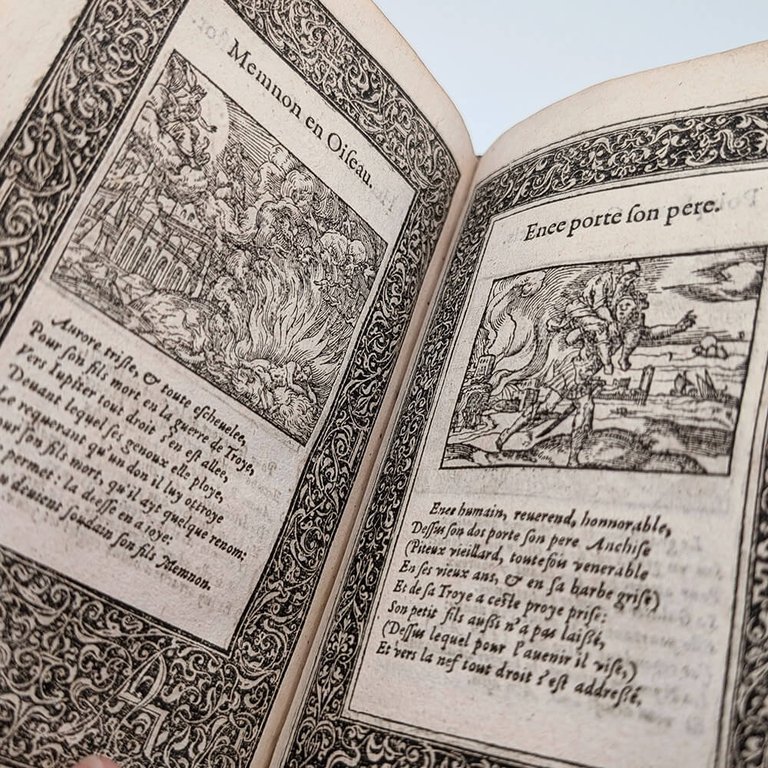 Memnon en Oiſeau.
Aurore triſte, & toute eſcheuelee,
Pour ſon fils mort en la guerre de Troye,
Vers Iupiter tout droit s'en eſt allee,
Deuant lequel ſes genoux elle ploye,
Le requerant qu'un don il luy ottroye
ſon fils mort, qu'il ayt quelque renom;
permet: la deeſſe en a ioye:
deuient ſoudain ſon fils Memnon.
Enee porte ſon pere.
Enee humain, reuerend, honnorable,
Deſſus ſon dos porte ſon pere Anchiſe
(Piteux vieillard, toutefois venerable
En ſes vieux ans, & en ſa barbe griſe)
Et de ſa Troye a ceſte proye priſe:
Son petit fils auſsi n'a pas laiſsé,
(Deſſus lequel pour l'auenir il viſe,)
Et vers la nef tout droit s'eſt addreſsé.